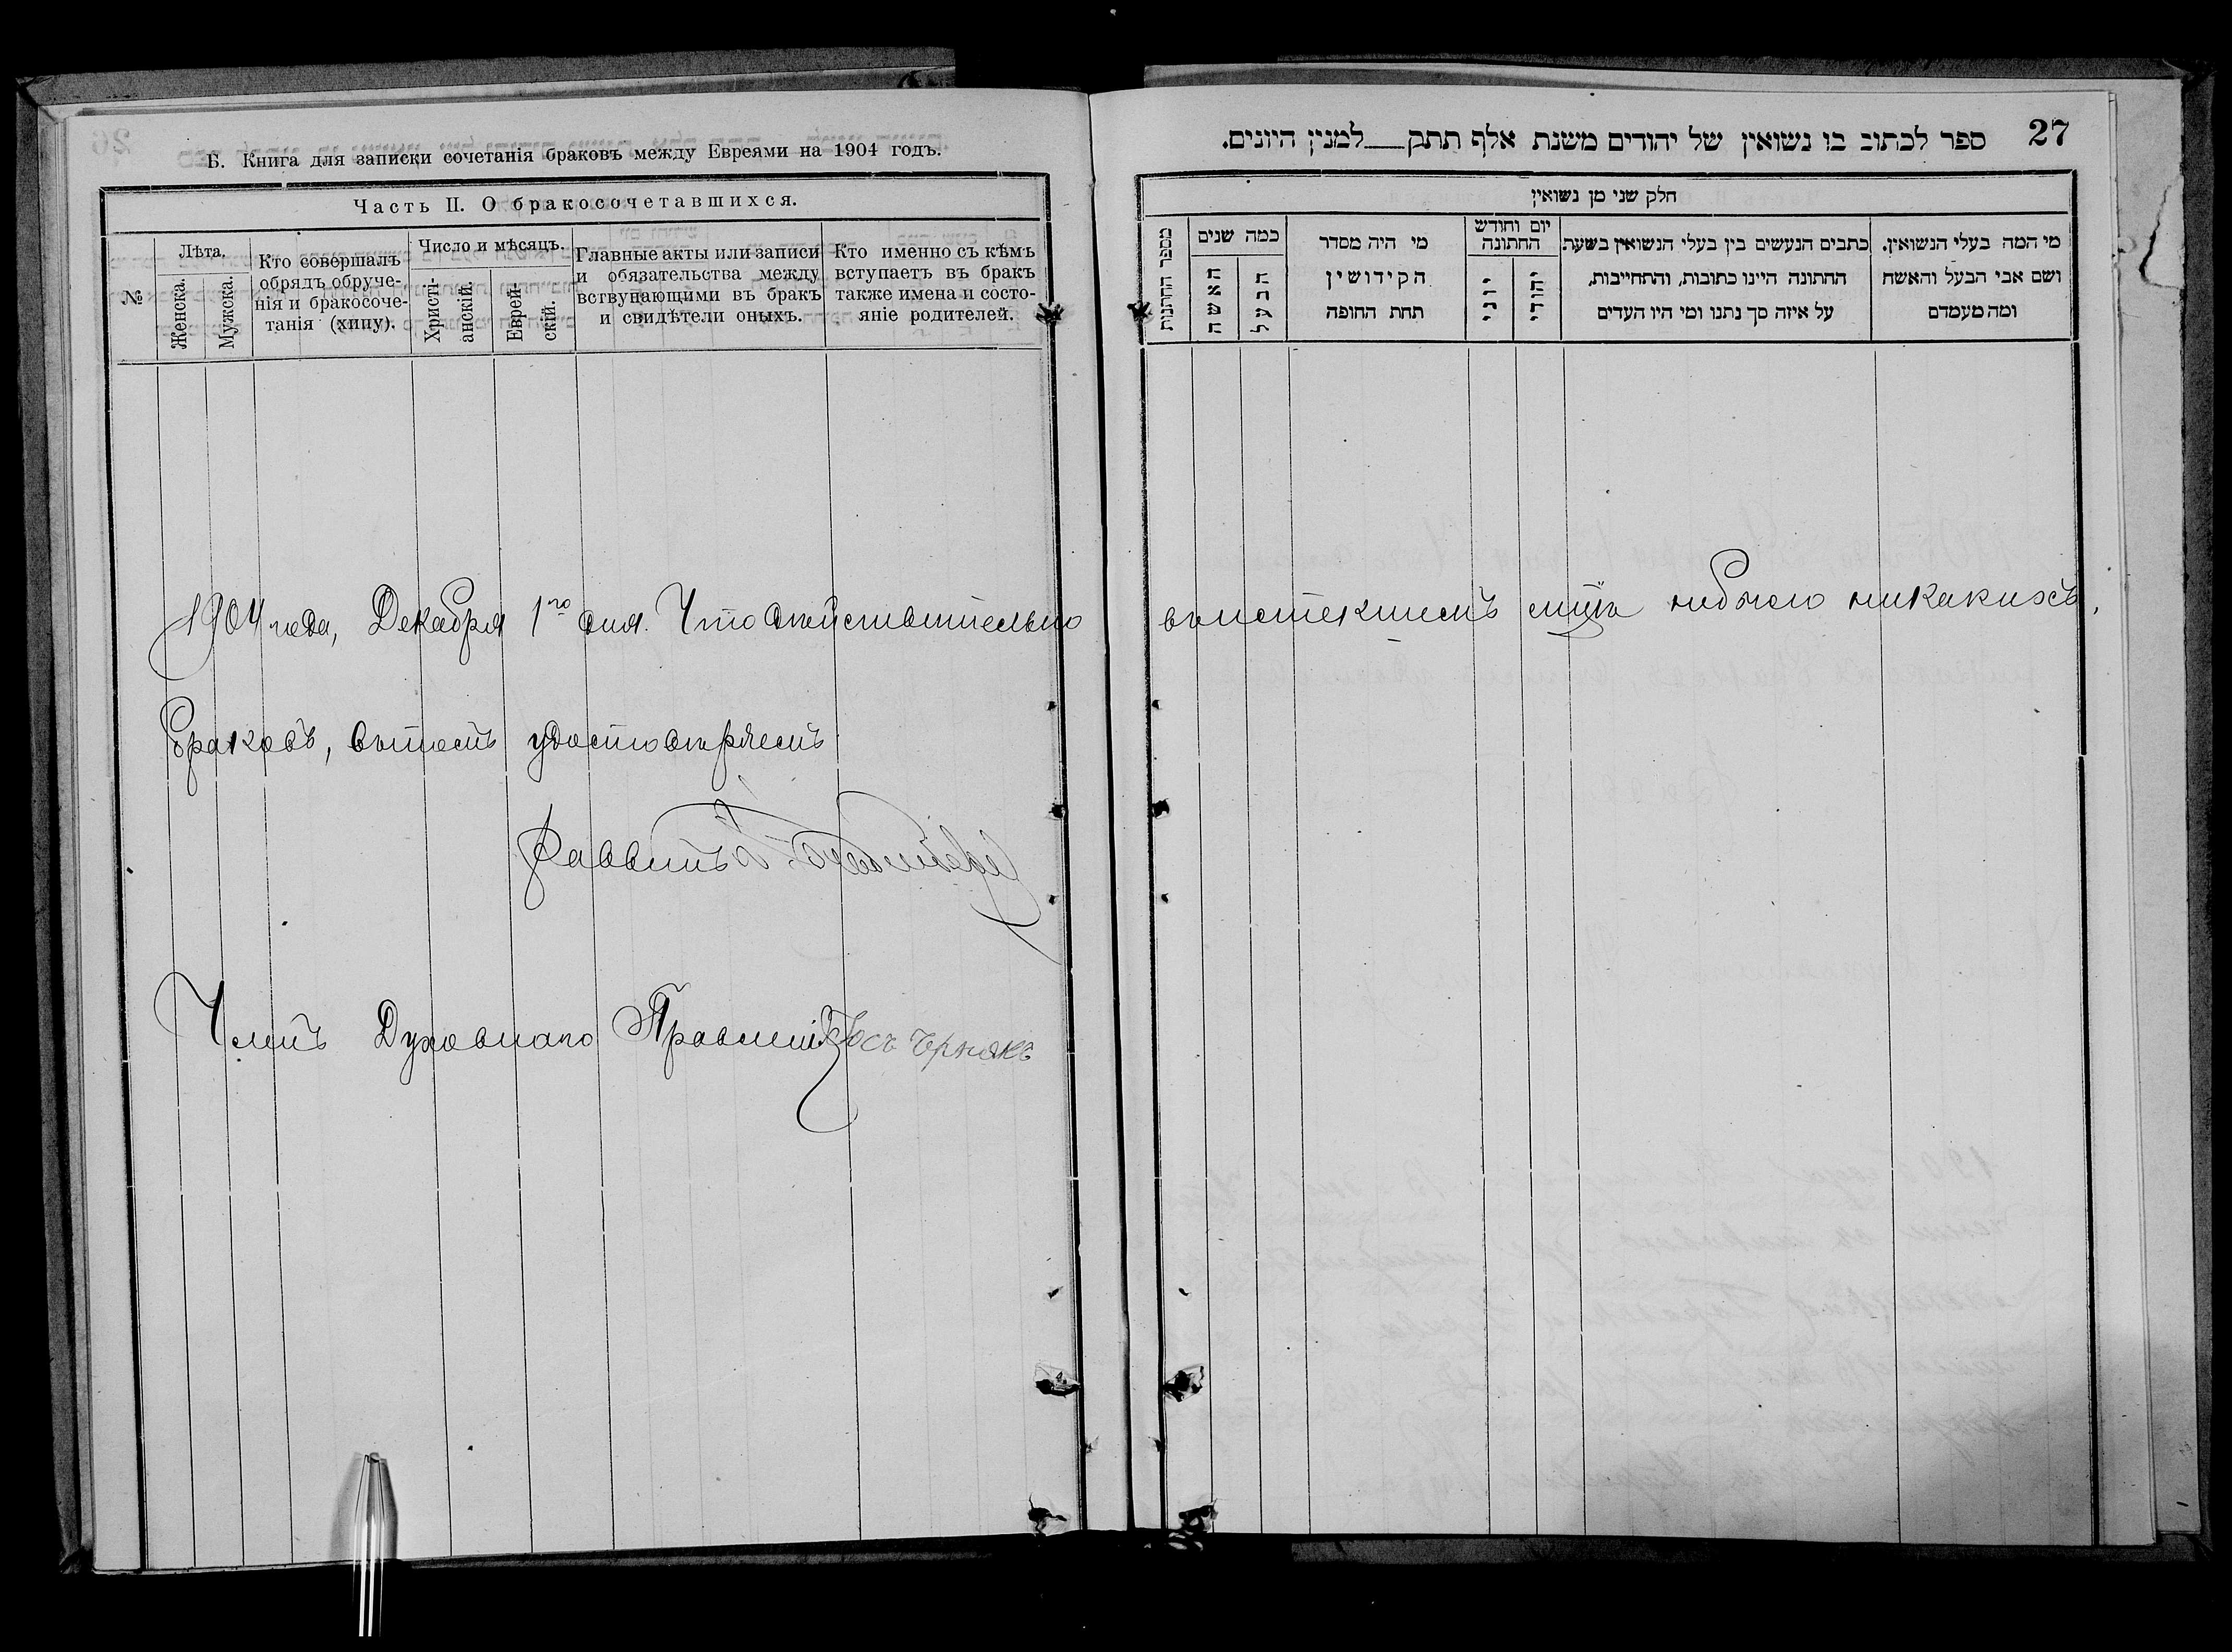 Б. Книга для записки сочетанія браковъ между Евреями на 1904 годъ.
Часть II. О бракосочетавшихся.
№
Лѣта.
Женска.
Мужска.
Кто совершалъ
обрядъ обруче-
нія и бракосоче-
танія (хипу).
Число и мѣсяцъ.
Христі-
анскій.
Еврей-
скій.
Главные акты или записи
и обязательства между
вствупающими въ бракъ
и свидѣтели оныхъ.
Кто именно съ кѣмъ
вступаетъ въ бракъ
также имена и состо-
яніе родителей.
1904 года, Декабря 1го дня. Что дѣйствительно
браковъ, въ томъ удостовѣряемъ
Раввинъ
Членъ Духовнаго Правленія Іось Чрнякъ
27
ספר לכתוב בו נשואין של יהודים משנת אלף תתק למנין היונים.
חלק שני מן נשואין
מספר החתונות
כמה שנים
האשה
הבעל
מי היה מסדר
הקידושין
תחת החופה
יום וחודש
החתונה
יוני
יהודי
כתבים הנעשים בין בעלי הנשואין בשעת
החתונה היינו כתובות, והתחייבות,
על איזה סך נתנו ומי היו העדים
מי המה בעלי הנשואין.
ושם אבי הבעל והאשה
ומה מעמדם
въ истекшемъ м-цѣ небыло никакихъ,